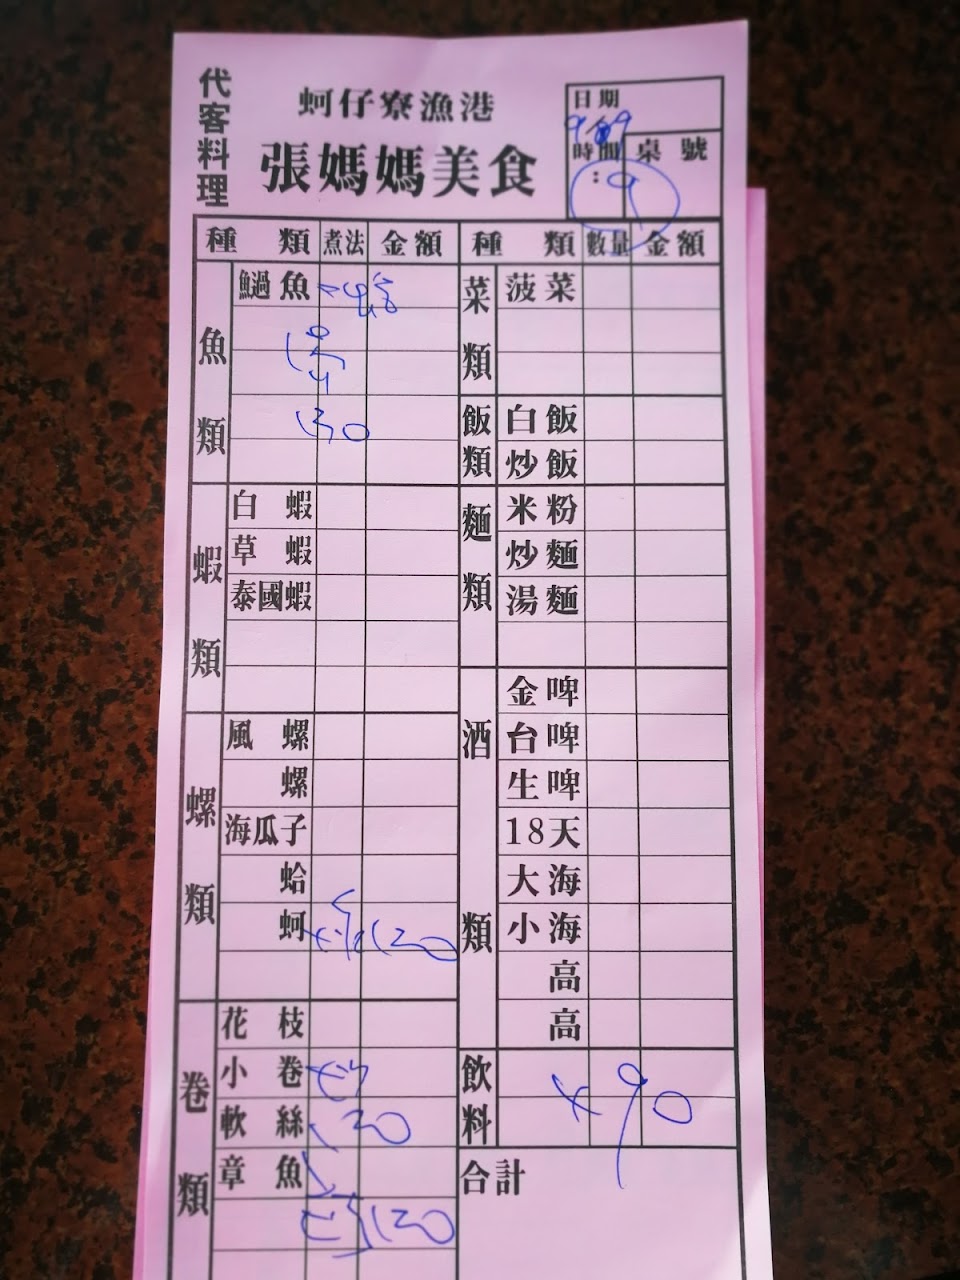 代客料理
蚵仔寮漁港
張媽媽美食
日期
9
時間 桌號
: 9
種類 煮法 金額 種類 數量 金額
魚類
鯃魚
130
蝦類
白蝦
草蝦
泰國蝦
螺類
風螺
螺
海瓜子
蛤
蚵 120
卷類
花枝
小卷
軟絲
章魚
130
菜類
菠菜
飯類
白飯
炒飯
麵類
米粉
炒麵
湯麵
酒類
金啤
台啤
生啤
18天
大海
小海
高
高
飲料
90
合計